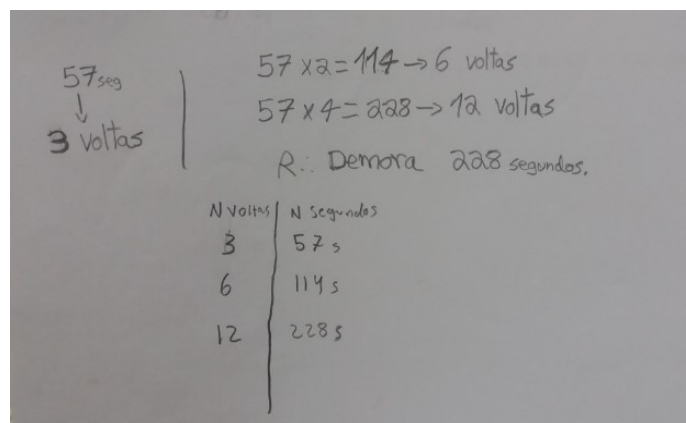 57 seg
↓
3 voltas
57 x 2 = 114 → 6 voltas
57 x 4 = 228 → 12 voltas
R.: Demora 228 segundos.
N voltas | N segundos
3 | 57 s
6 | 114 s
12 | 228 s